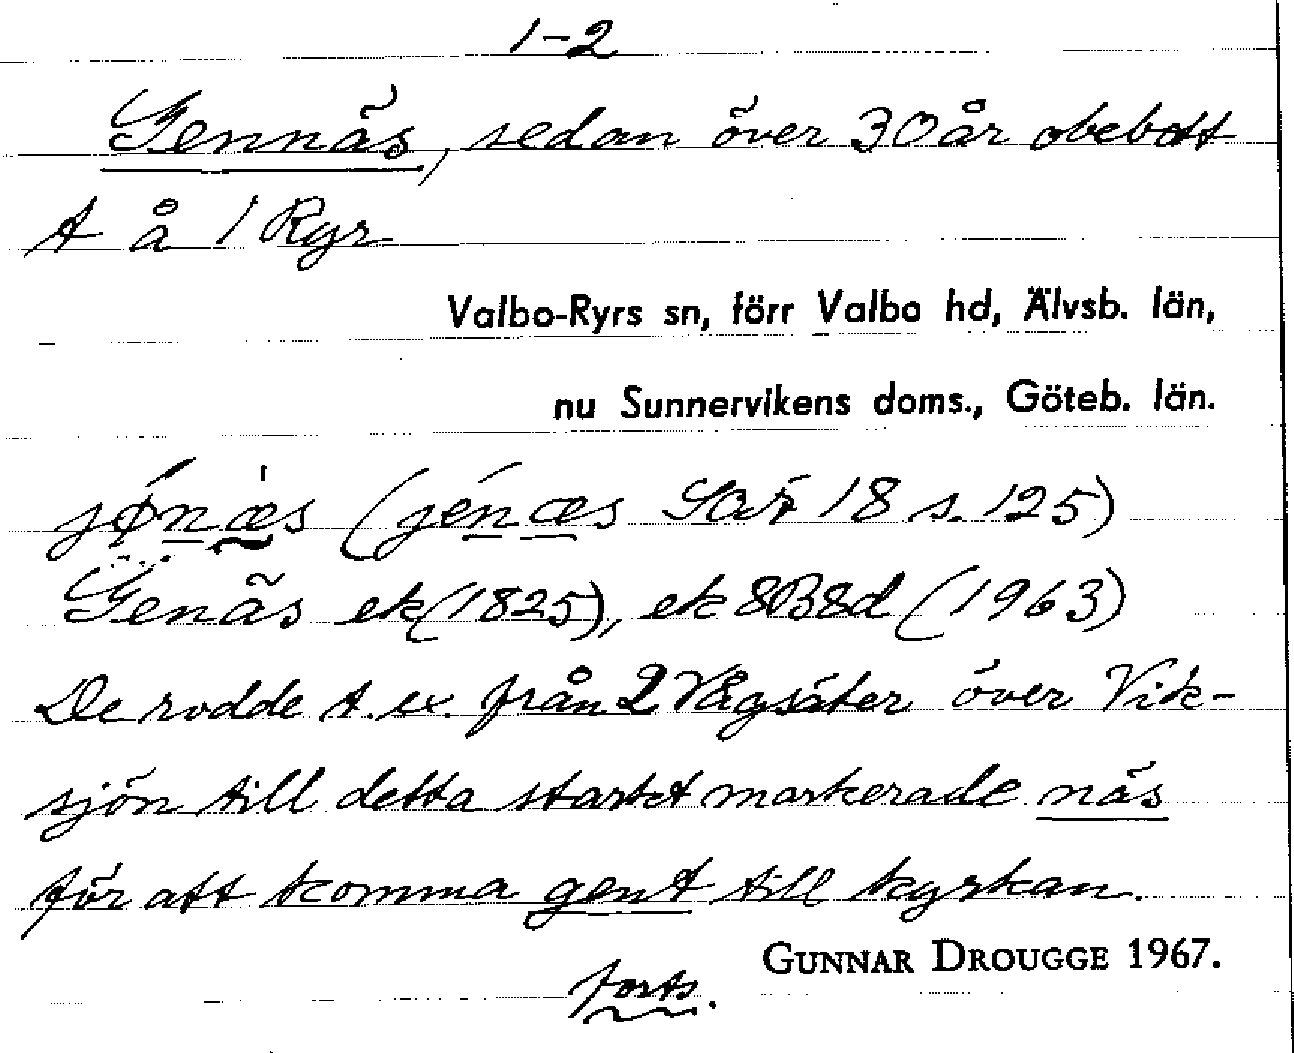 1-2
Gennäs, sedan över 30 år obebott
t å 1 Ryr
Valbo-Ryrs sn, förr Valbo hd, Älvsb. län,
nu Sunnervikens doms., Göteb. län.
jǿnæs (jénæs SOÄ 18 s. 125)
Genäs ek (1825), ek 8B8d (1963)
De rodde t. ex. från 2 Vågsäter över Vik-
sjön till detta starkt markerade näs
för att komma gent till kyrkan.
GUNNAR DROUGGE 1967.
forts.